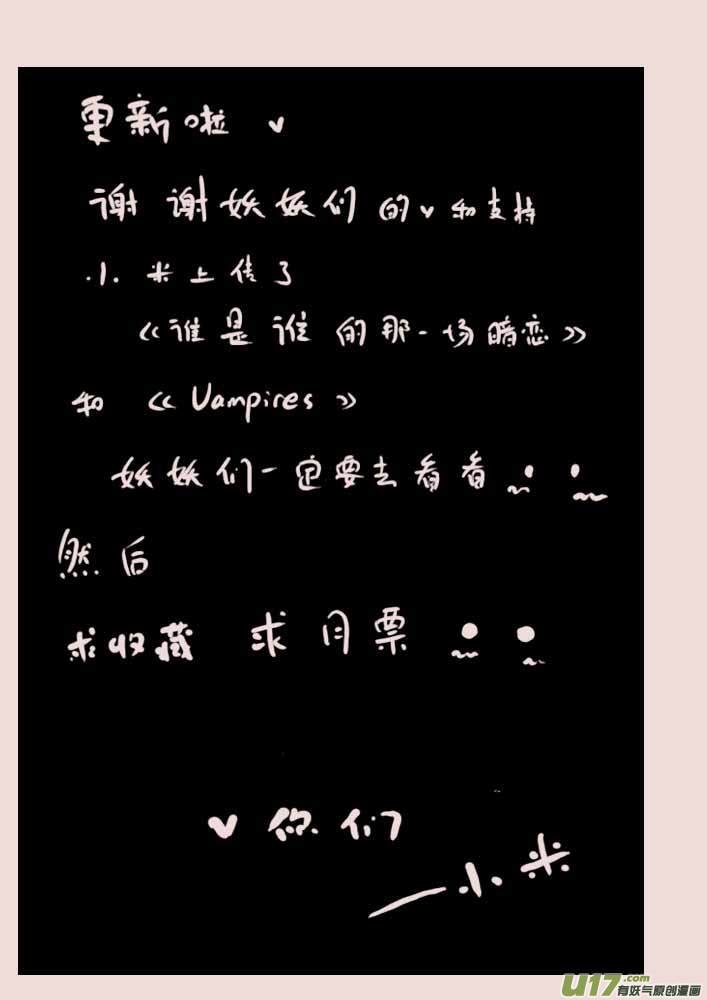 更新啦 ♥
谢谢妖妖们的♥和支持
小米上传了
《谁是谁的那一场暗恋》
和 《Vampires》
妖妖们一定要去看看
然后
求收藏 求月票
♥ 你们
——小米
U17.com
有妖气原创漫画